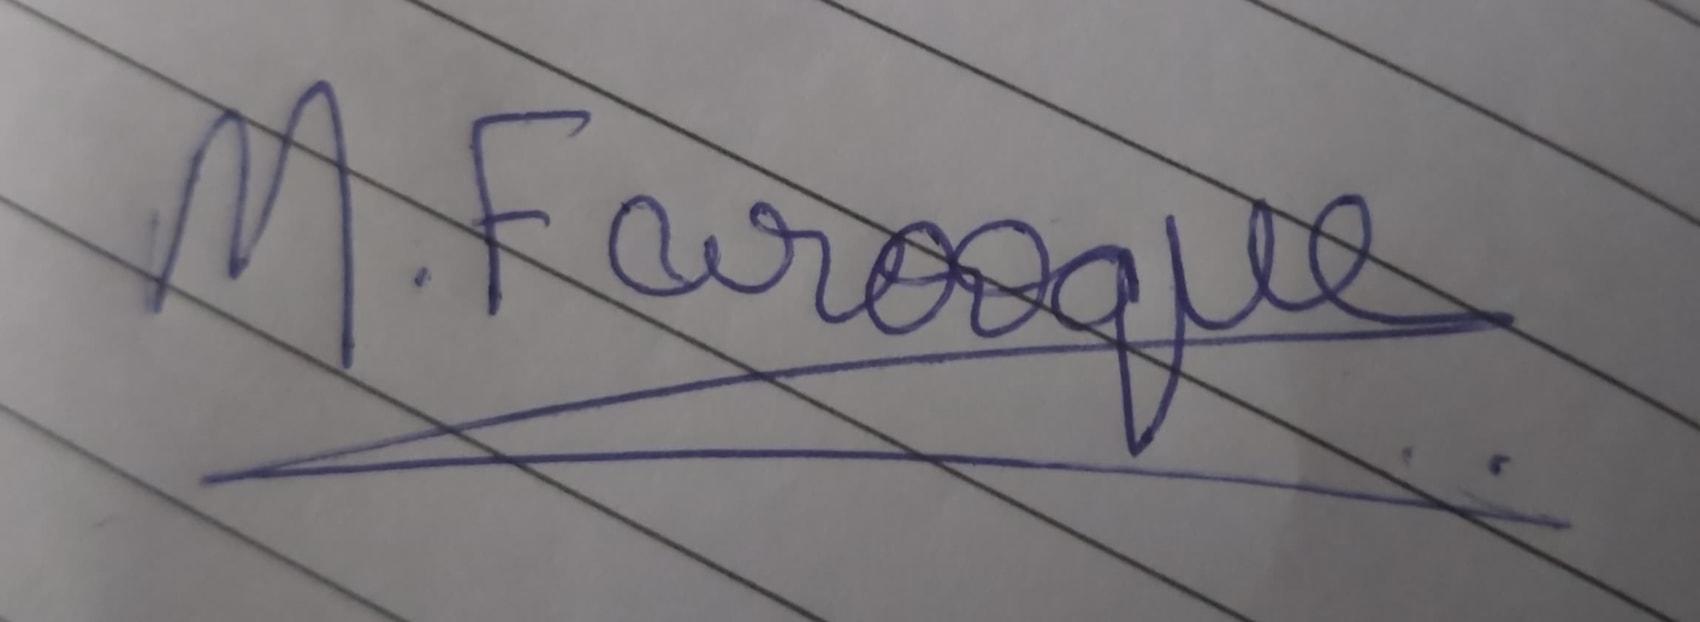 M. Farooque